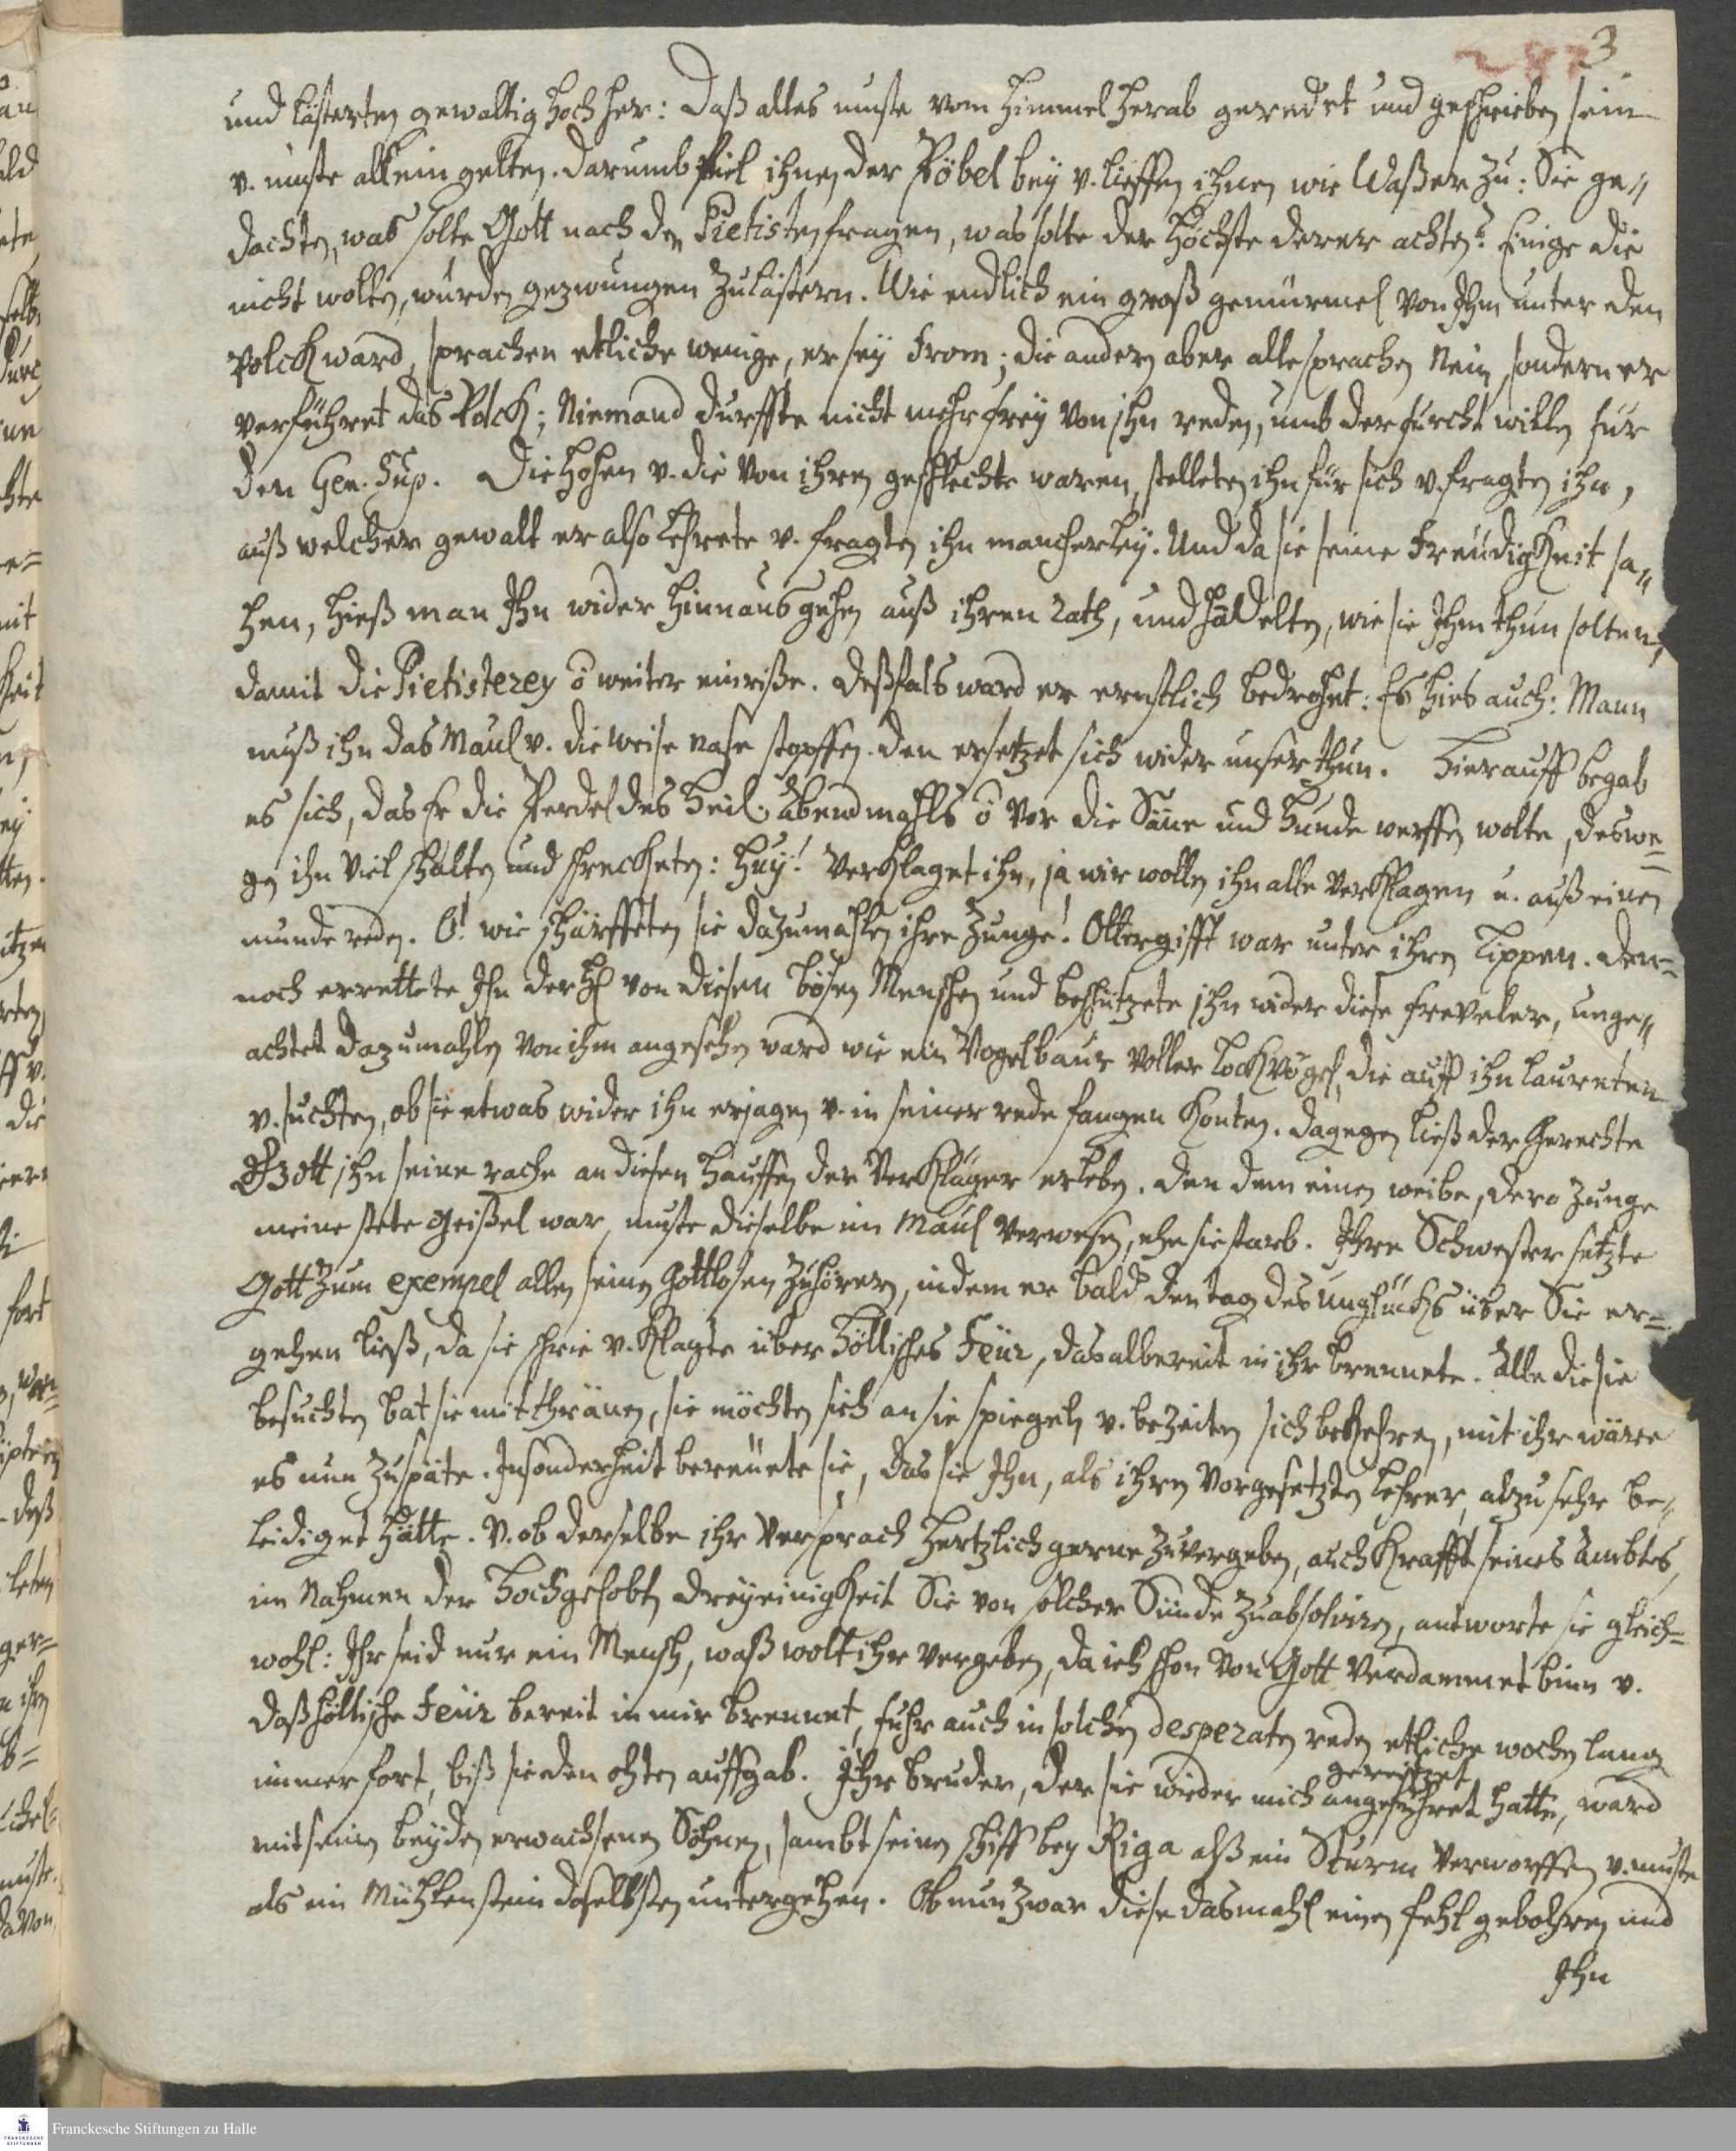 287 3.
und lästerten gewaltig hoch her: Daß alles muste vom Himmel herab geredet und geschrieben sein
v. muste allein gelten. Darumb fiel ihnen der Pöbel bey v. lieffen ihnen wie Waßer zu: Sie ge=
dachten, was solte Gott nach den Pietisten fragen, was solte der Höchste derer achten? Einige die
nicht wolten, wurden gezwungen zu lästern. Wie endlich ein groß gemürmel von Ihm unter den
Volck ward, sprachen etliche wenige, er sey from; die andern aber alle sprachen Nein, sondern er
verführet das Volck; Niemand durffte nicht mehr frey von ihn reden, umb der furcht willen für
den Gen. Sup. Die Hohen v. die von ihren geschlechte waren, stelleten ihn für sich v. fragten ihn,
auß welcher gewalt er also lehrete v. fragten ihn mancherley. Und da sie seine Freudigkeit sa=
hen, hieß man Ihn wider hinnaus gehen auß ihren rath, und handelten, wie sie Ihm thun solten,
damit die Pietisterey õ weiter einriße. Deßfals ward er ernstlich bedrohet: Es hies auch: Mann
muß ihn das Maul v. die weise nase stopffen. den er setzet sich wider unser thun. Hierauff begab
es sich, das Er die Perdel des Heil. Abendmahls õ vor die Säue und Hunde werffen wolte, deswe=
gen ihn viel schalten und schreckten: Huy! verklaget ihn, ja wir wollen ihn alle verklagen u. auß einen
munde reden. O! wie schärffeten sie dazumahlen ihre Zunge! Ottergifft war unter ihren Lippen. Den=
noch errettete Ihn der H von diesen bösen Menschen und beschützete ihn wider diese freveler, unge=
achtet dazumahlen von ihm angesehen ward wie ein Vogelbaur voller Lockvögel, die auff ihn laureten
v. suchten, ob sie etwas wider ihn erjagen v. in seiner rede fangen konten. Dagegen ließ der Gerechte
Gott ihn seine rache an diesen hauffen der Verkläger erleben. Den dem einen weibe, dero Zunge
meine stete Geißel war, muste dieselbe im Maul verwesen, ehe sie starb. Ihre Schwester setzte
Gott zum exempel allen seinen Gottlosen Zuhörern, indem er bald den tag des Unglücks über Sie er=
gehen ließ, da sie schrie v. klagte über Höllisches Feür, das albereit in ihr brennete. Alle die sie
besuchten bat sie mit thränen, sie möchten sich an sie spiegeln v. bezeiten sich bekehren, mit ihr wäre
es nun zu späte. Insonderheit bereuete sie, das sie Ihn, als ihren Vorgesetzten Lehrer, alzu sehr be=
leidiget hätte. V. ob derselbe ihr versprach hertzlich gerne zu vergeben, auch Krafft seines Ambtes,
im Nahmen der Hochgelobten Dreyeinigkeit Sie von solcher Sünde zu absolviren, antworte sie gleich=
wohl: Ihr seid nur ein Mensch, waß wolt ihr vergeben, da ich schon von Gott verdammet binn v.
daß höllische Feür bereit in mir brennet, fuhr auch in solchen desperaten reden etliche wochen lang
immer fort, biß sie den ohten auffgab. Ihr bruder, der sie wieder mich angeführet hatte, ward
gereitzet
mit seinen beyden erwachsenen Söhnen, sambt seinen schiff bey Riga alß ein Sturm verworffen v. muste
als ein Mühlenstein daselbsten untergehen. Ob nun zwar diese dasmahl einen fehl gebohren und
Ihn
Franckesche Stiftungen zu Halle